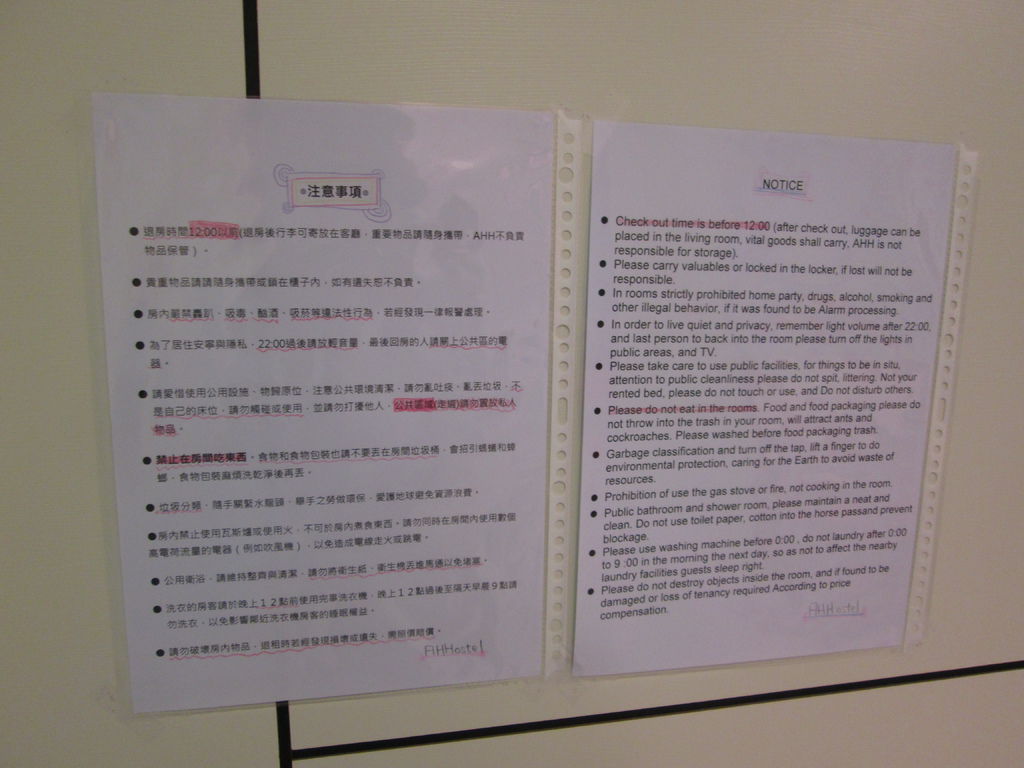 注意事項
● 退房時間12:00以前(退房後行李可寄放在客廳，重要物品請隨身攜帶，AHH不負責
物品保管）。
● 貴重物品請請隨身攜帶或鎖在櫃子內，如有遺失恕不負責。
● 房內嚴禁轟趴、吸毒、酗酒、吸菸等違法性行為，若經發現一律報警處理。
● 為了居住安寧與隱私，22:00過後請放輕音量，最後回房的人請關上公共區的電
器。
● 請愛惜使用公用設施，物歸原位，注意公共環境清潔，請勿亂吐痰、亂丟垃圾，不
是自己的床位，請勿觸碰或使用，並請勿打擾他人，公共區域(走廊)請勿置放私人
物品。
● 禁止在房間吃東西。食物和食物包裝也請不要丟在房間垃圾桶，會招引螞蟻和蟑
螂，食物包裝麻煩洗乾淨後再丟。
● 垃圾分類，隨手關緊水龍頭，舉手之勞做環保，愛護地球避免資源浪費。
● 房內禁止使用瓦斯爐或使用火，不可於房內煮食東西。請勿同時在房間內使用數個
高電荷流量的電器（例如吹風機），以免造成電線走火或跳電。
● 公用衛浴，請維持整齊與清潔，請勿將衛生紙、衛生棉丟堆馬通以免堵塞。
● 洗衣的房客請於晚上１２點前使用完畢洗衣機，晚上１２點過後至隔天早晨９點請
勿洗衣，以免影響鄰近洗衣機房客的睡眠權益。
● 請勿破壞房內物品，退租時若經發現損壞或遺失，需照價賠償。
AHHostel
NOTICE
● Check out time is before 12:00 (after check out, luggage can be
placed in the living room, vital goods shall carry, AHH is not
responsible for storage).
● Please carry valuables or locked in the locker, if lost will not be
responsible.
● In rooms strictly prohibited home party, drugs, alcohol, smoking and
other illegal behavior, if it was found to be Alarm processing.
● In order to live quiet and privacy, remember light volume after 22:00,
and last person to back into the room please turn off the lights in
public areas, and TV.
● Please take care to use public facilities, for things to be in situ,
attention to public cleanliness please do not spit, littering. Not your
rented bed, please do not touch or use, and Do not disturb others.
● Please do not eat in the rooms. Food and food packaging please do
not throw into the trash in your room, will attract ants and
cockroaches. Please washed before food packaging trash.
● Garbage classification and turn off the tap, lift a finger to do
environmental protection, caring for the Earth to avoid waste of
resources.
● Prohibition of use the gas stove or fire, not cooking in the room.
● Public bathroom and shower room, please maintain a neat and
clean. Do not use toilet paper, cotton into the horse passand prevent
blockage.
● Please use washing machine before 0:00 , do not laundry after 0:00
to 9 :00 in the morning the next day, so as not to affect the nearby
laundry facilities guests sleep right.
● Please do not destroy objects inside the room, and if found to be
damaged or loss of tenancy required According to price
compensation.
AHHostel